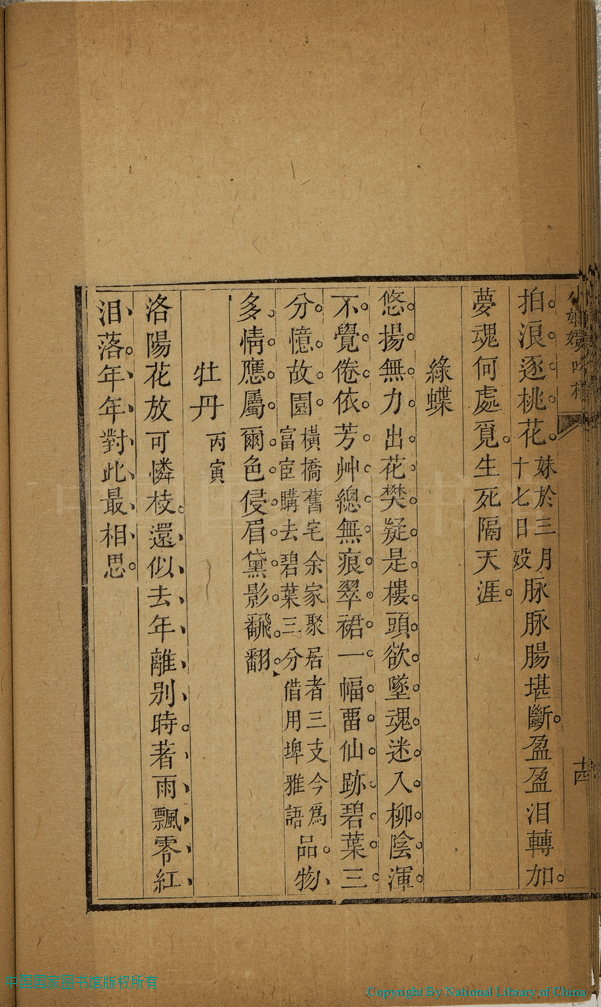 拍浪逐桃花。妹於三月十七日歿脉脉腸堪斷。盈盈泪轉加。
夢魂何處覔。生死隔天涯。
綠蝶
悠揚無力出花樊疑是樓頭欲墜魂迷入柳陰渾
不覺倦依芳艸總無痕翠裙一幅畱仙跡碧葉三
分憶故園橫橋舊宅余家聚居者三支今爲富宦購去碧葉三分借用埤雅語品物
多情應屬爾色侵眉黛影飜翻
牡丹丙寅
洛陽花放可憐枝。還似去年離别時。著雨飄零紅
泪落年年對此最相思。
十四
Copyright By National Library of China